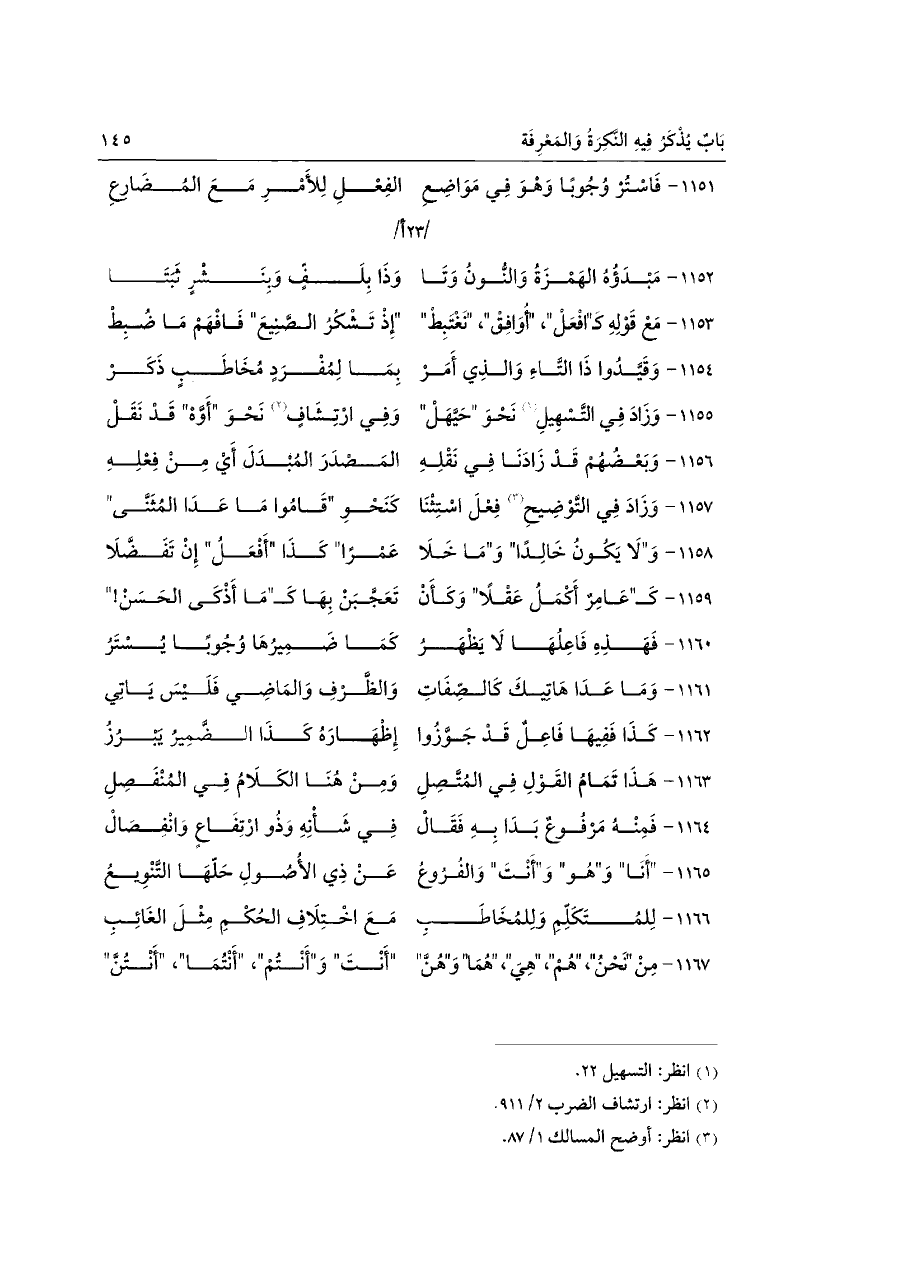 بَابٌ يُذْكَرُ فِيهِ النَّكِرَةُ وَالمَعْرِفَة ١٤٥
١١٥١- فَاسْتُرْ وُجُوبًا وَهْوَ فِي مَوَاضِعِ الفِعْلِ لِلأَمْرِ مَعَ المُضَارِعِ
/٢٣أ/
١١٥٢- مَبْدَؤُهُ الهَمْزَةُ وَالنُّونُ وَتَا وَذَا بِلَفٍّ وَبِنَشْرٍ ثَبَتَا
١١٥٣- مَعْ قَوْلِهِ كَـ"افْعَلْ"، "أُوَافِقْ"، "نَغْتَبِطْ" "إِذْ تَشْكُرُ الصَّنِيعَ" فَافْهَمْ مَا ضُبِطْ
١١٥٤- وَقَيَّدُوا ذَا التَّاءِ وَالذِي أَمَرْ بِمَا لِمُفْرَدٍ مُخَاطَبٍ ذَكَرْ
١١٥٥- وَزَادَ فِي التَّسْهِيلِ(١) نَحْوَ "حَيَّهَلْ" وَفِي ارْتِشَافٍ(٢) نَحْوَ "أَوَّهْ" قَدْ نَقَلْ
١١٥٦- وَبَعْضُهُمْ قَدْ زَادَنَا فِي نَقْلِهِ المَصْدَرَ المُبْدَلَ أَيْ مِنْ فِعْلِهِ
١١٥٧- وَزَادَ فِي التَّوْضِيحِ(٣) فِعْلَ اسْتِثْنَا كَنَحْوِ "قَامُوا مَا عَدَا المُثَنَّى"
١١٥٨- وَ"لَا يَكُونُ خَالِدًا" وَ"مَا خَلَا عَمْرًا" كَذَا "أَفْعَلُ" إِنْ تَفَضَّلَا
١١٥٩- كَـ"عَامِرٌ أَكْمَلُ عَقْلًا" وَكَأَنْ تَعَجَّبَنْ بِهَا كَـ"مَا أَذْكَى الحَسَنْ!"
١١٦٠- فَهَذِهِ فَاعِلُهَا لَا يَظْهَرُ كَمَا ضَمِيرُهَا وُجُوبًا يُسْتَرُ
١١٦١- وَمَا عَدَا هَاتِيكَ كَالصِّفَاتِ وَالظَّرْفِ وَالمَاضِي فَلَيْسَ يَاتِي
١١٦٢- كَذَا فَفِيهَا فَاعِلٌ قَدْ جَوَّزُوا إِظْهَارَهُ كَذَا الضَّمِيرُ يَبْرُزُ
١١٦٣- هَذَا تَمَامُ القَوْلِ فِي المُتَّصِلِ وَمِنْ هُنَا الكَلَامُ فِي المُنْفَصِلِ
١١٦٤- فَمِنْهُ مَرْفُوعٌ بَدَا بِهِ فَقَالْ فِي شَأْنِهِ وَذُو ارْتِفَاعٍ وَانْفِصَالْ
١١٦٥- "أَنَا" وَ"هُو" وَ"أَنْتَ" وَالفُرُوعُ عَنْ ذِي الأُصُولِ حَلَّهَا التَّنْوِيعُ
١١٦٦- لِلمُتَكَلِّمِ وَلِلمُخَاطَبِ مَعَ اخْتِلَافِ الحُكْمِ مِثْلَ الغَائِبِ
١١٦٧- مِنْ "نَحْنُ"، "هُمْ"، "هِيَ"، "هُمَا" وَ"هُنَّ" "أَنْتَ" وَ"أَنْتُمْ"، "أَنْتُمَا"، "أَنْتُنَّ"
(١) انظر: التسهيل ٢٢.
(٢) انظر: ارتشاف الضرب ٢/ ٩١١.
(٣) انظر: أوضح المسالك ١/ ٨٧.